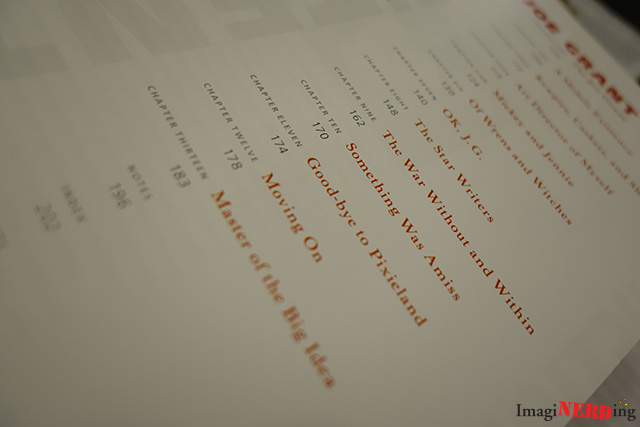 JOE GRANT
Mickey and Jennie
130 Of Wrens and Witches
CHAPTER SEVEN 140 OK, J. G.
CHAPTER EIGHT 148 The Star Writers
CHAPTER NINE 162 The War Without and Within
CHAPTER TEN 170 Something Was Amiss
CHAPTER ELEVEN 174 Good-bye to Pixieland
CHAPTER TWELVE 178 Moving On
CHAPTER THIRTEEN 183 Master of the Big Idea
NOTES 196
INDEX 202
ImagiNERDing